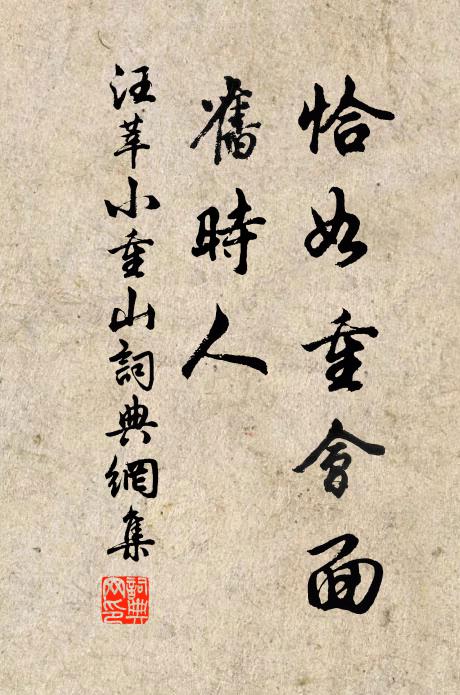 恰如重會面
舊時人
汪莘小重山詞典網集
詞典網印